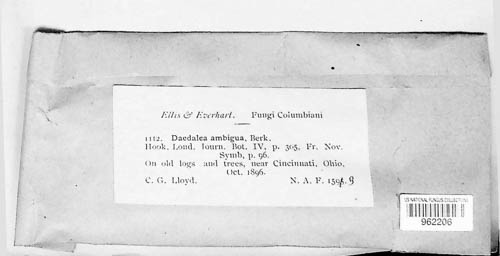 Ellis & Everhart. Fungi Columbiani
1112. Daedalea ambigua, Berk.
Hook. Lond. Journ. Bot. IV, p. 305, Fr. Nov.
Symb, p. 96.
On old logs and trees, near Cincinnati, Ohio,
Oct. 1896.
C. G. Lloyd. N. A. F.
US NATIONAL FUNGUS COLLECTIONS
962206